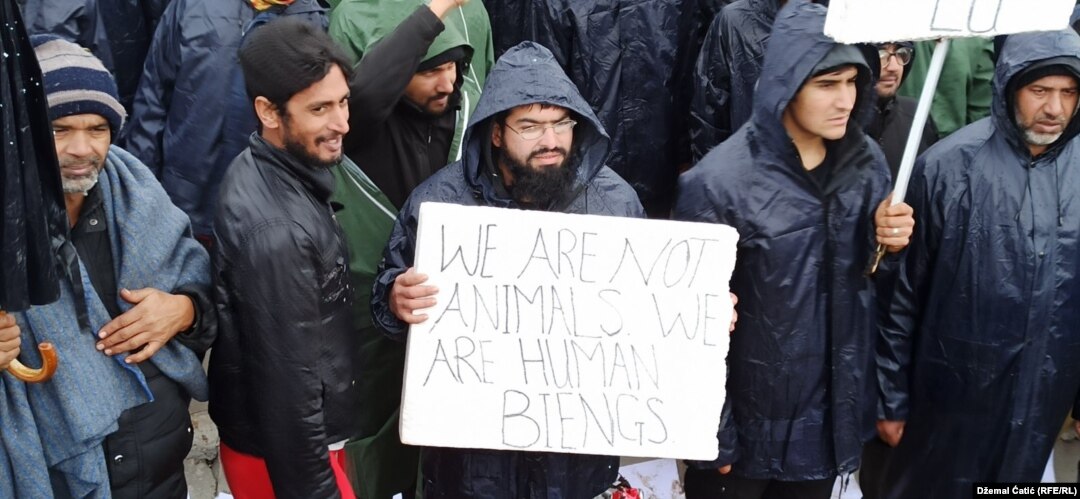 EU
WE ARE NOT
ANIMALS. WE
ARE HUMAN
BIENGS.
Džemal Ćatić (RFE/RL)